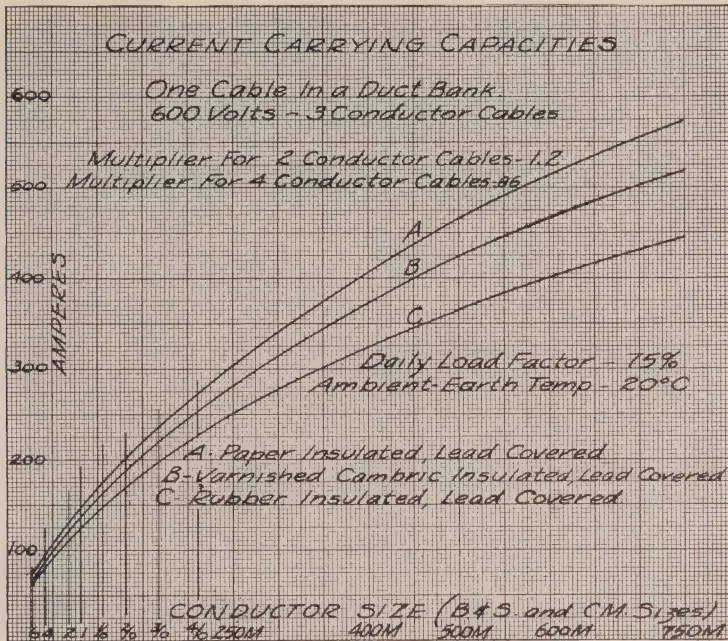 CURRENT CARRYING CAPACITIES
One Cable In a Duct Bank
600 Volts - 3 Conductor Cables
Multiplier For 2 Conductor Cables - 1.2
Multiplier For 4 Conductor Cables .86
600
500
400
300
200
100
AMPERES
A
B
C
Daily Load Factor - 75%
Ambient-Earth Temp - 20°C
A - Paper Insulated, Lead Covered
B - Varnished Cambric Insulated, Lead Covered
C - Rubber Insulated, Lead Covered
CONDUCTOR SIZE (B&S. and CM. Sizes)
6 4 2 1 1/0 2/0 3/0 4/0 250M 400M 500M 600M 750M